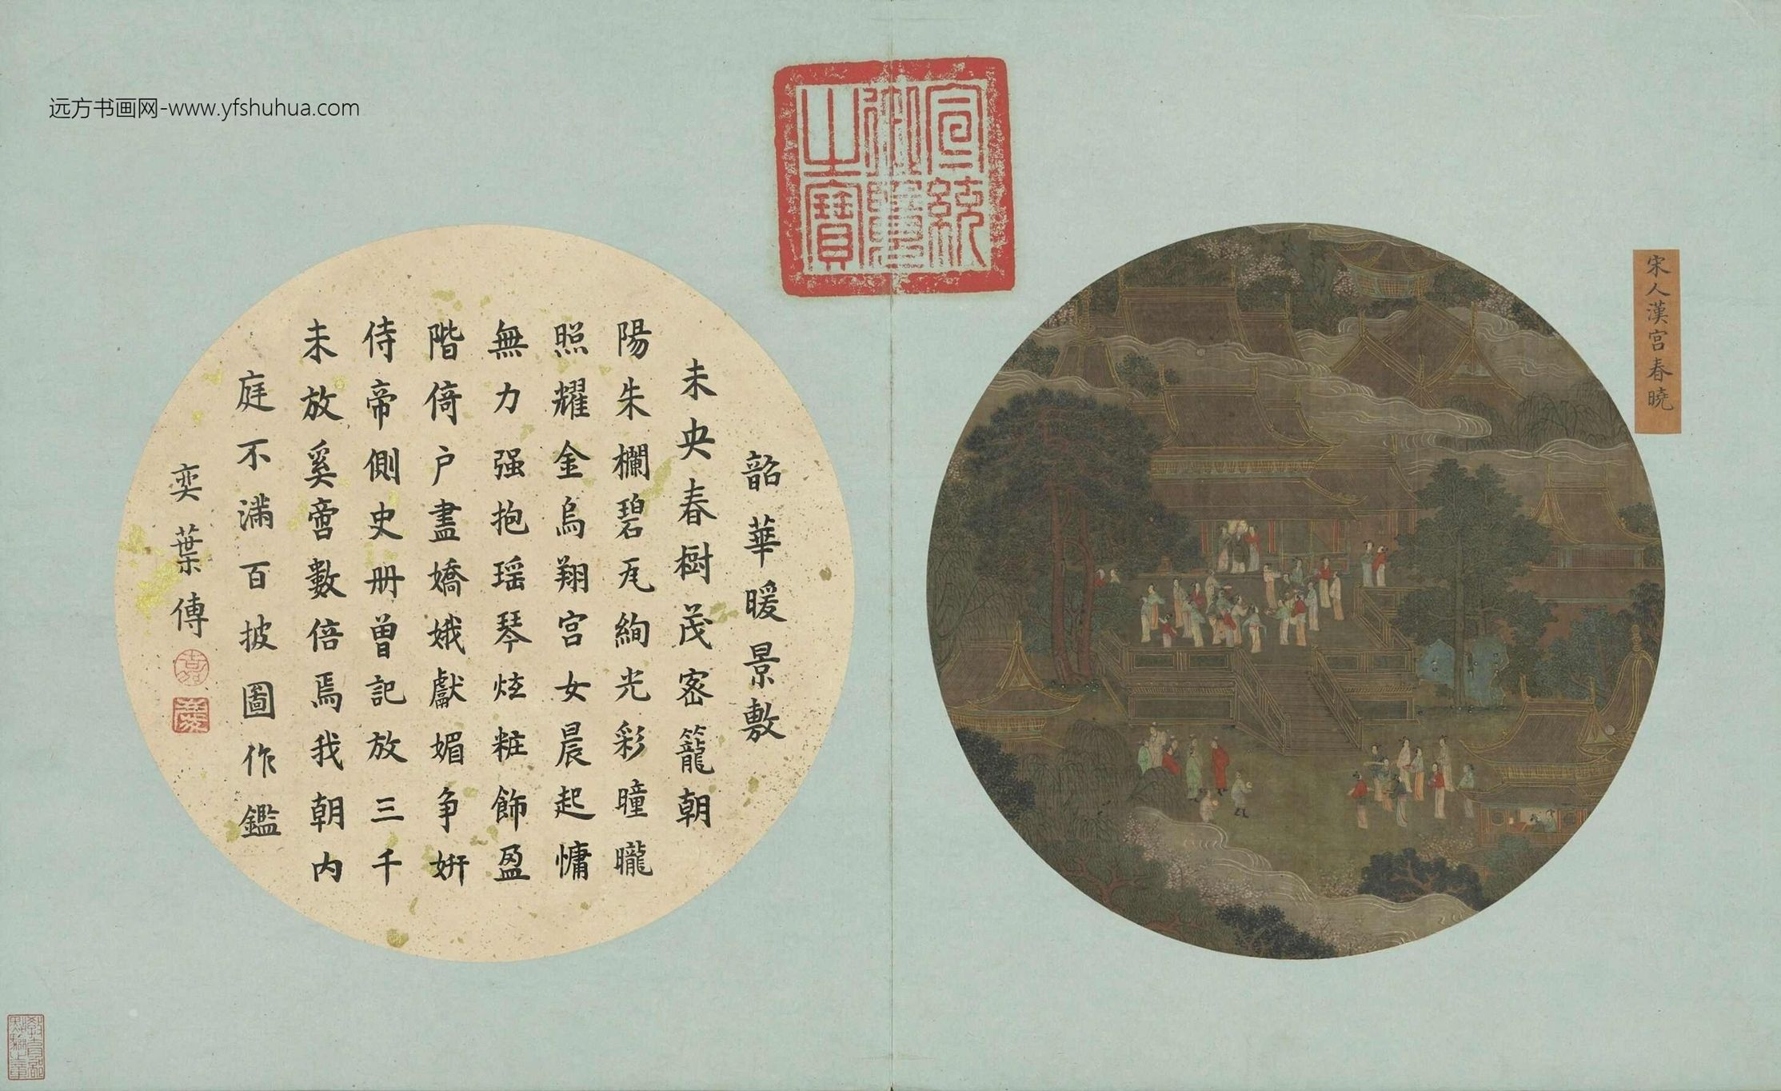 远方书画网-www.yfshuhua.com
宣統御覽之寶
宋人漢宮春曉
韶華暖景敷
未央春樹茂密籠朝
陽朱欄碧瓦絢光彩曈曨
照耀金烏翔宮女晨起慵
無力强抱瑶琴炫粧飾盈
階倚户盡嬌娥獻媚争妍
侍帝側史册曾記放三千
未放奚啻數倍焉我朝内
庭不滿百披圖作鑑
奕葉傳